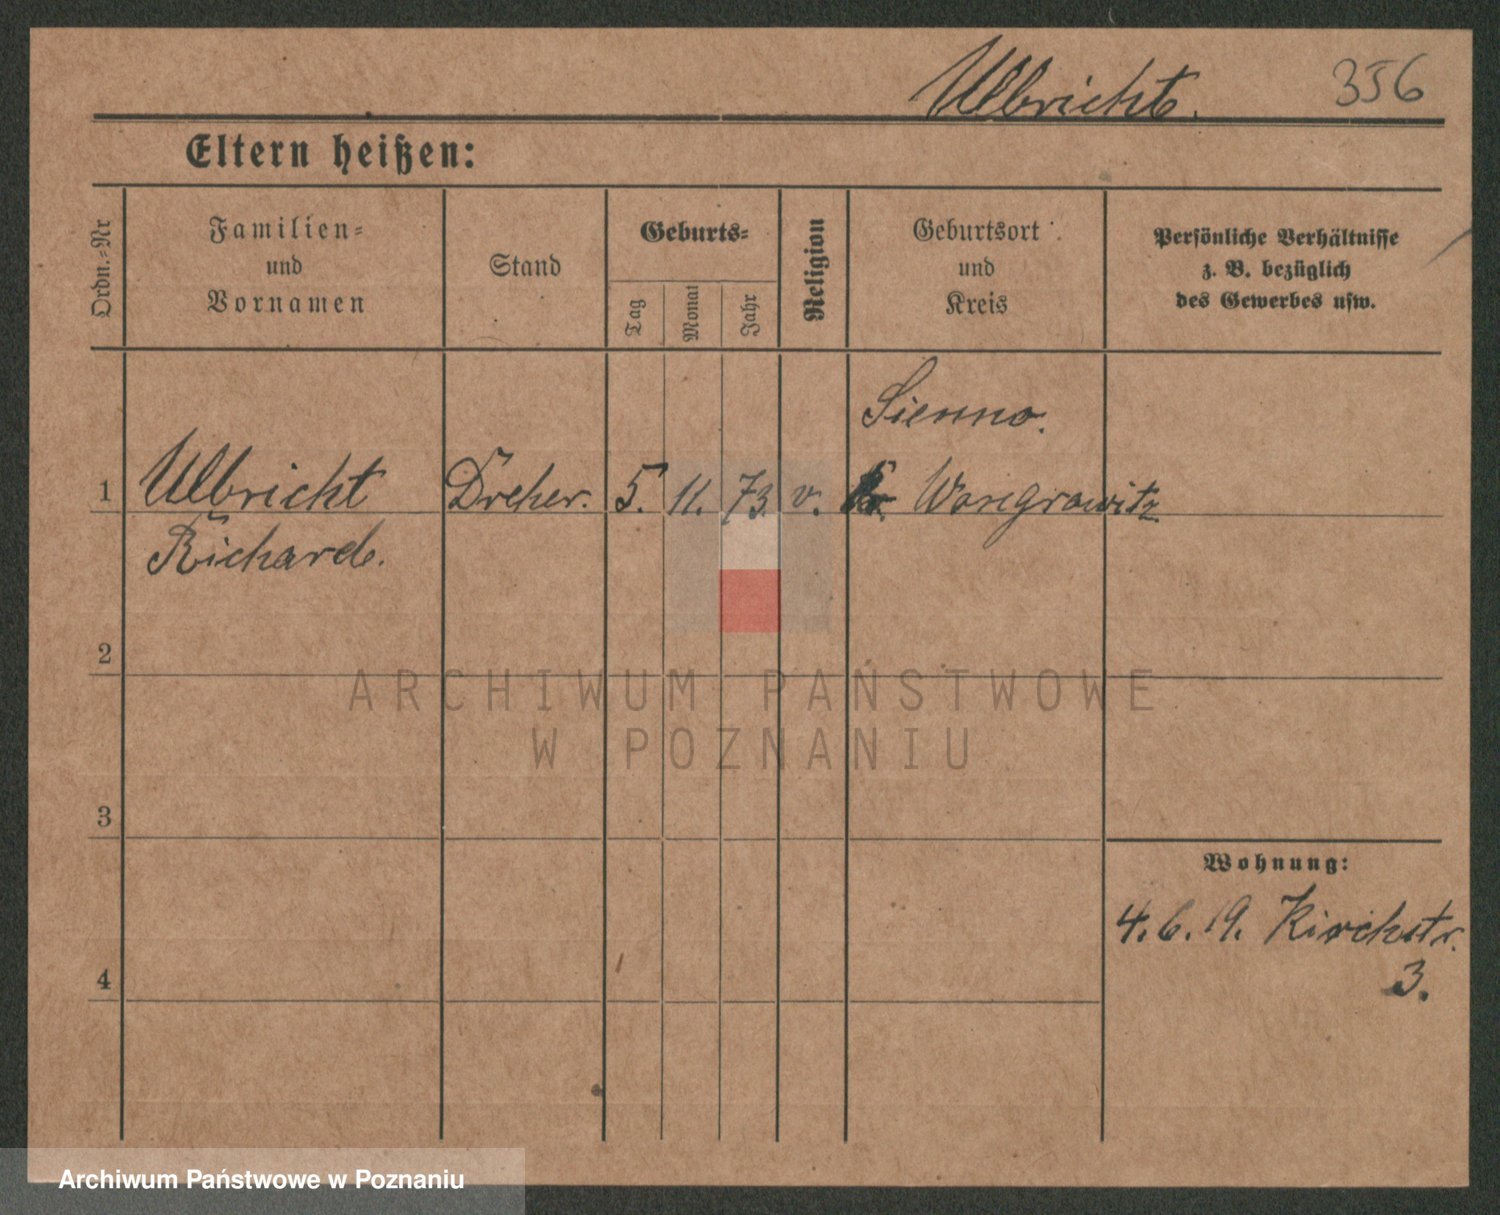 Ulbricht. 356
Eltern heißen:
Ordn.=Nr
Familien=
und
Vornamen
Stand
Geburts=
Tag
Monat
Jahr
Religion
Geburtsort
und
Kreis
Persönliche Verhältnisse
z. B. bezüglich
des Gewerbes usw.
Sienno.
1 Ulbricht Dreher. 5. 11. 73 v. Kr. Wongrowitz
Richard.
2
ARCHIWUM PAŃSTWOWE
W POZNANIU
3
Wohnung:
4.6.19. Kirchstr.
3.
4
Archiwum Państwowe w Poznaniu